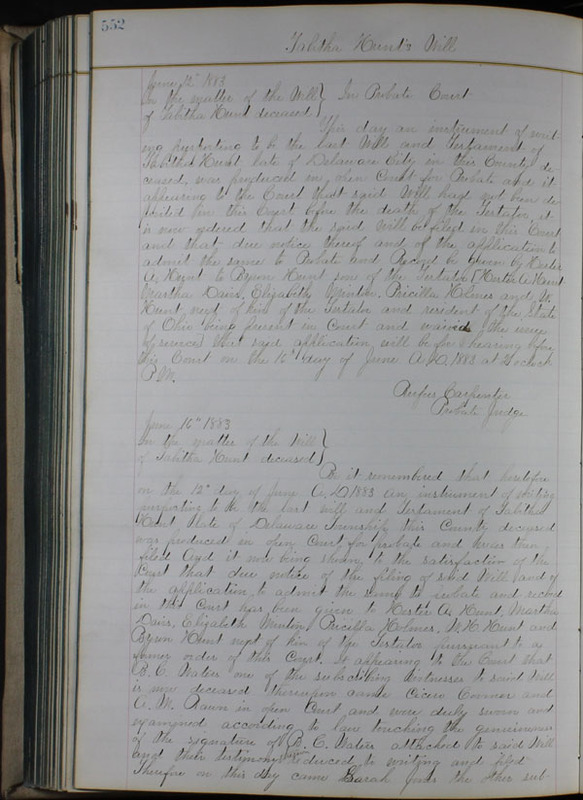 552
Tabitha Hunt's Will
June 12th 1883
In the matter of the Will } In Probate Court
of Tabitha Hunt deceased }
This day an instrument of writ-
ing purporting to be the last Will and Testament of
Tabitha Hunt late of Delaware City in this County de-
ceased, was produced in open Court for Probate and it
appearing to the Court that said Will had not been de-
posited in this Court before the death of the Testator, it
is now ordered that the said Will be filed in this Court
and that due notice thereof and of the application to
admit the same to Probate and Record be given by Hester
A. Hunt to Byron Hunt son of the Testator Hester A. Hunt
Martha Davis, Elizabeth Minton, Priscilla Holmes and W.
Hunt next of kin of the Testator and resident of the State
of Ohio being present in Court and waived the issue
of service that said application will be for hearing before
this Court on the 16th day of June A.D. 1883 at o'clock
P.M.
Rufus Carpenter
Probate Judge
June 16th 1883
In the matter of the Will }
of Tabitha Hunt deceased }
Be it remembered that heretofore
on the 12th day of June A.D. 1883 an instrument of writing
purporting to be the last will and Testament of Tabitha
Hunt late of Delaware Township this County deceased
was produced in open Court for probate and was then
filed And it now being shown to the satisfaction of the
Court that due notice of the filing of said Will and of
the application to admit the same to probate and record
in this Court has been given to Hester A. Hunt, Martha
Davis, Elizabeth Minton, Priscilla Holmes, W. H. Hunt and
Byron Hunt next of kin of the Testator pursuant to a
former order of this Court. It appearing to the Court that
B. C. Waters one of the subscribing witnesses to said Will
is now deceased thereupon came Cicero Coomer and
A. M. Rawn in open Court and were duly sworn and
examined according to law touching the genuineness
of the signature of B. C. Waters attached to said Will
and their testimony reduced to writing and filed
Therefore on this day came Sarah Jones the other sub-